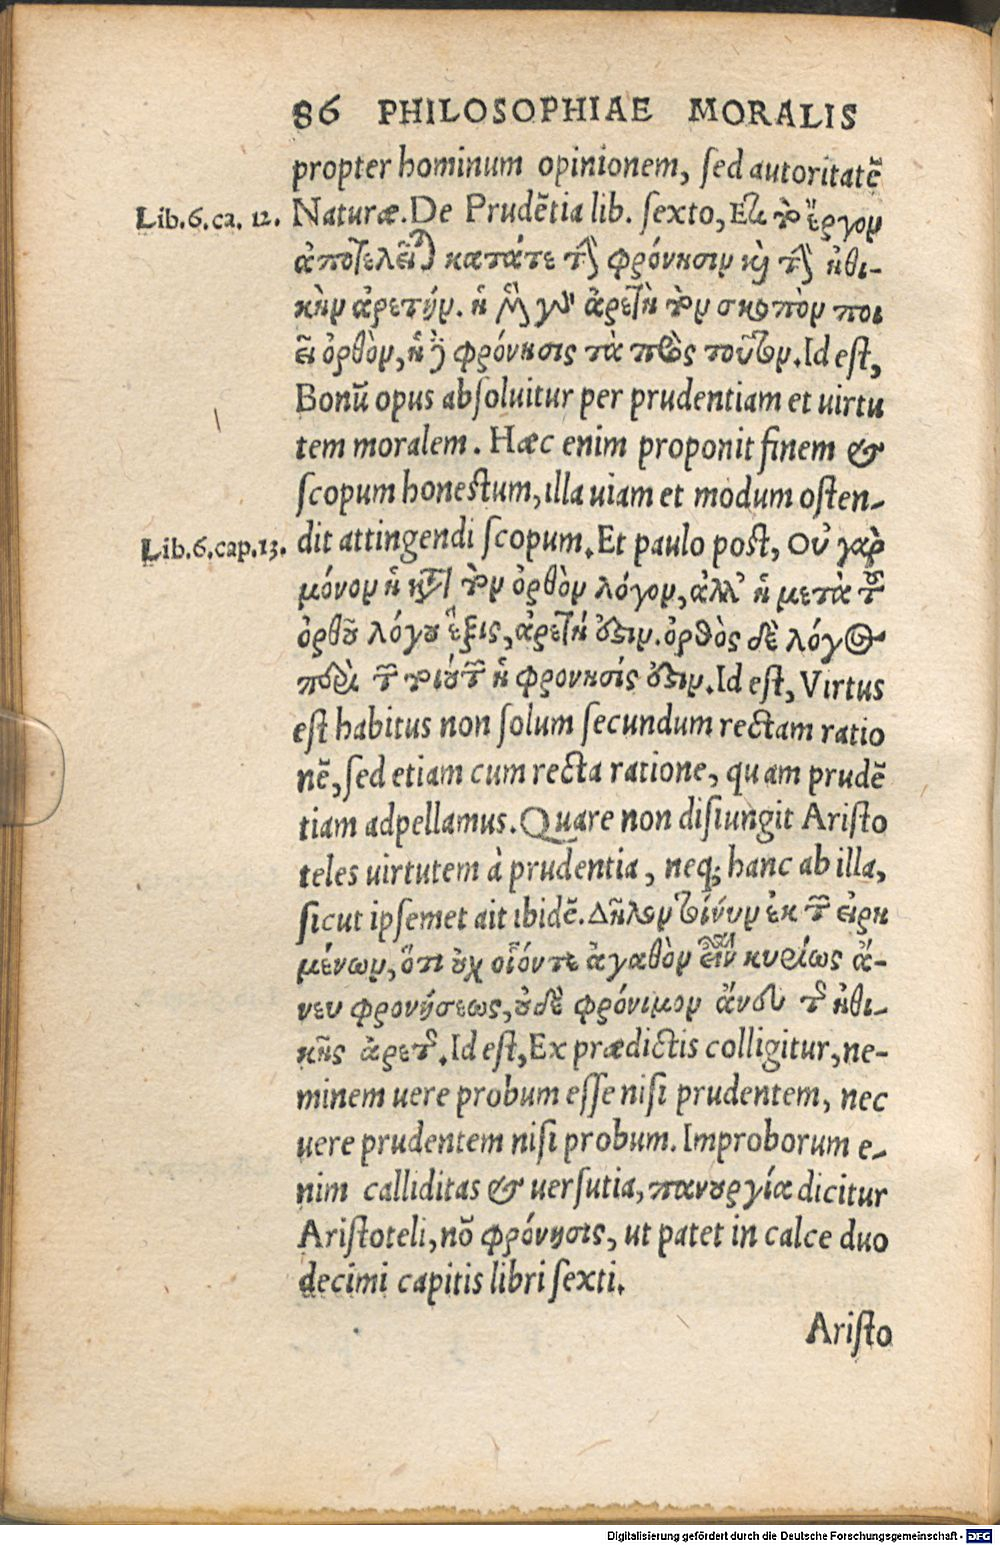 86 PHILOSOPHIAE MORALIS
propter hominum opinionem, sed autoritatẽ
Lib.6.ca. 12. Naturæ. De Prudẽtia lib. sexto, Ἔτι τὸ ἔργον
ἀποτελεῖται κατά τε τὴν φρόνησιν καὶ τὴν ἠθι-
κὴν ἀρετήν. ἡ μὲν γὰρ ἀρετὴ τὸν σκοπὸν ποι
εῖ ὀρθὸν, ἡ δὲ φρόνησις τὰ πρὸς τοῦτον. Id est,
Bonũ opus absoluitur per prudentiam et uirtu
tem moralem. Hæc enim proponit finem &
scopum honestum, illa uiam et modum osten-
Lib.6.cap.13. dit attingendi scopum. Et paulo post, Οὐ γὰρ
μόνον ἡ κατὰ τὸν ὀρθὸν λόγον, ἀλλ' ἡ μετὰ τοῦ
ὀρθοῦ λόγου ἕξις, ἀρετή ἐστιν. ὀρθὸς δὲ λόγος
περὶ τῶν τοιούτων ἡ φρονησίς ἐστιν. Id est, Virtus
est habitus non solum secundum rectam ratio
nẽ, sed etiam cum recta ratione, quam prudẽ
tiam adpellamus. Quare non disiungit Aristo
teles uirtutem à prudentia, neq; hanc ab illa,
sicut ipsemet ait ibidẽ. Δῆλον τοίνυν ἐκ τῶν εἰρη
μένων, ὅτι οὐχ οἷόντε ἀγαθὸν εἶναι κυρίως ἄ-
νευ φρονήσεως, οὐδὲ φρόνιμον ἄνευ τῆς ἠθι-
κῆς ἀρετῆς. Id est, Ex prædictis colligitur, ne-
minem uere probum esse nisi prudentem, nec
uere prudentem nisi probum. Improborum e-
nim calliditas & uersutia, πανουργία dicitur
Aristoteli, nõ φρόνησις, ut patet in calce duo
decimi capitis libri sexti.
Aristo
Digitalisierung gefördert durch die Deutsche Forschungsgemeinschaft - DFG